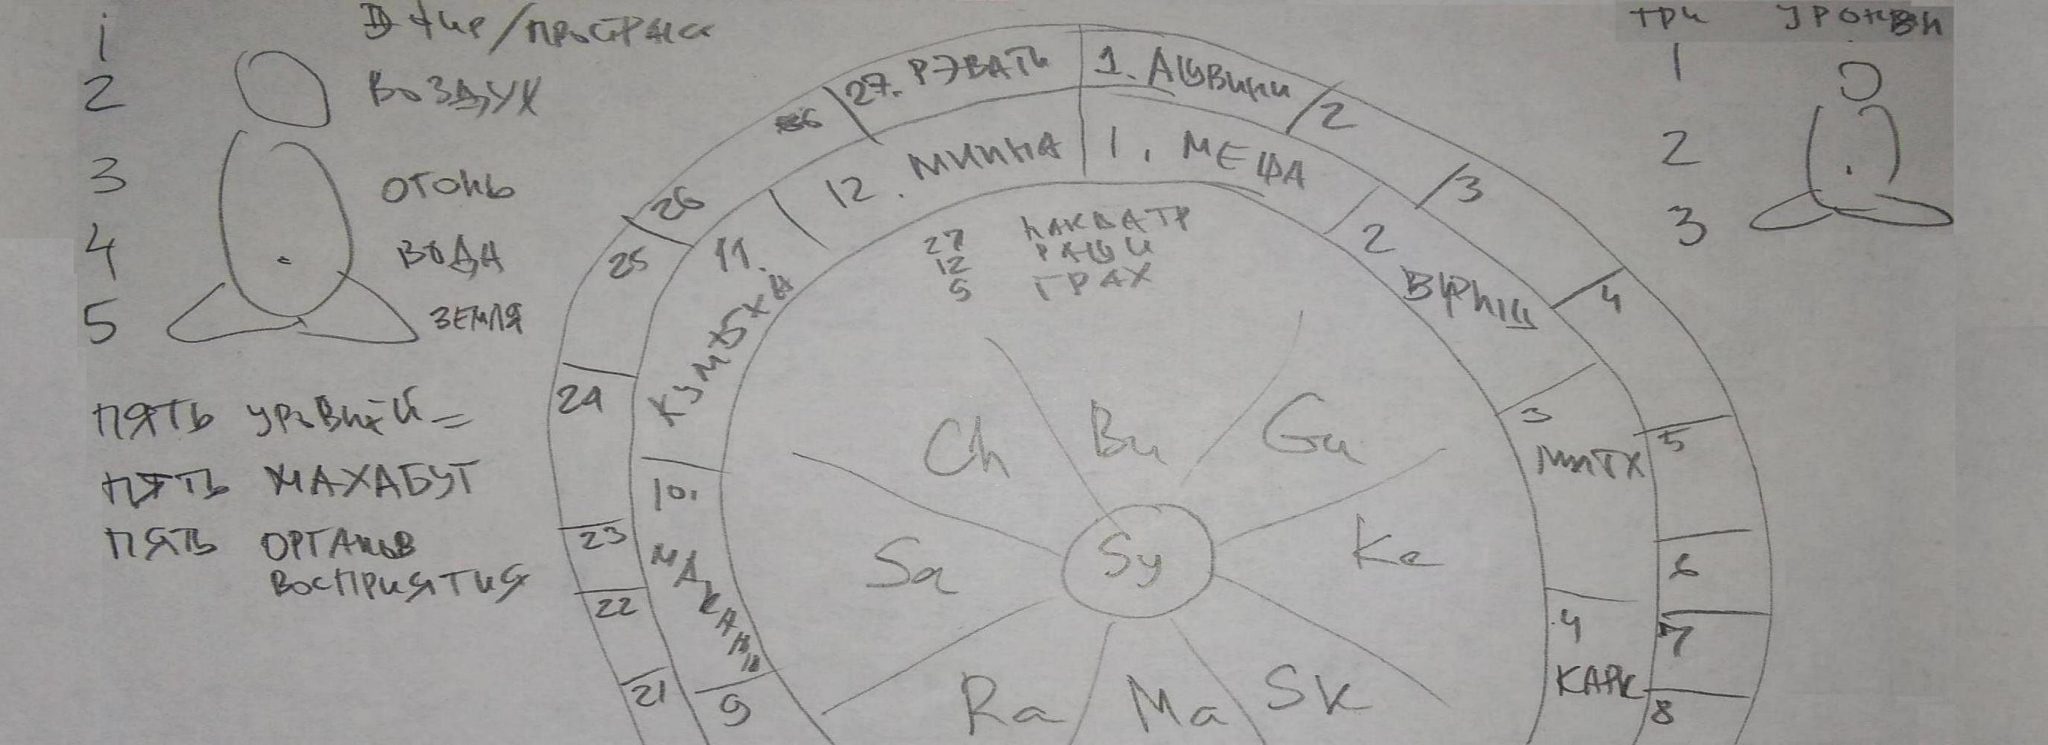 1
2 ВОЗДУХ
3 ОГОНЬ
4 ВОДА
5 ЗЕМЛЯ
ПЯТЬ УРОВНЕЙ =
ПЯТЬ МАХАБУТ
ПЯТЬ ОРГАНОВ
ВОСПРИЯТИЯ
27. РЭВАТИ
1. АШВИНИ
2
3
4
5
6
7
8
21
22
23
24
25
26
12. МИИНА
1. МЕША
2
3
МИТХ
4
КАРК
9
10.
11.
КУМБХА
27 НАКШАТР
12 РАШИ
9 ГРАХ
Ch
Bu
Gu
Sa
Sy
Ke
Ra
Ma
Sk
ТРИ УРОВНИ
1
2
3